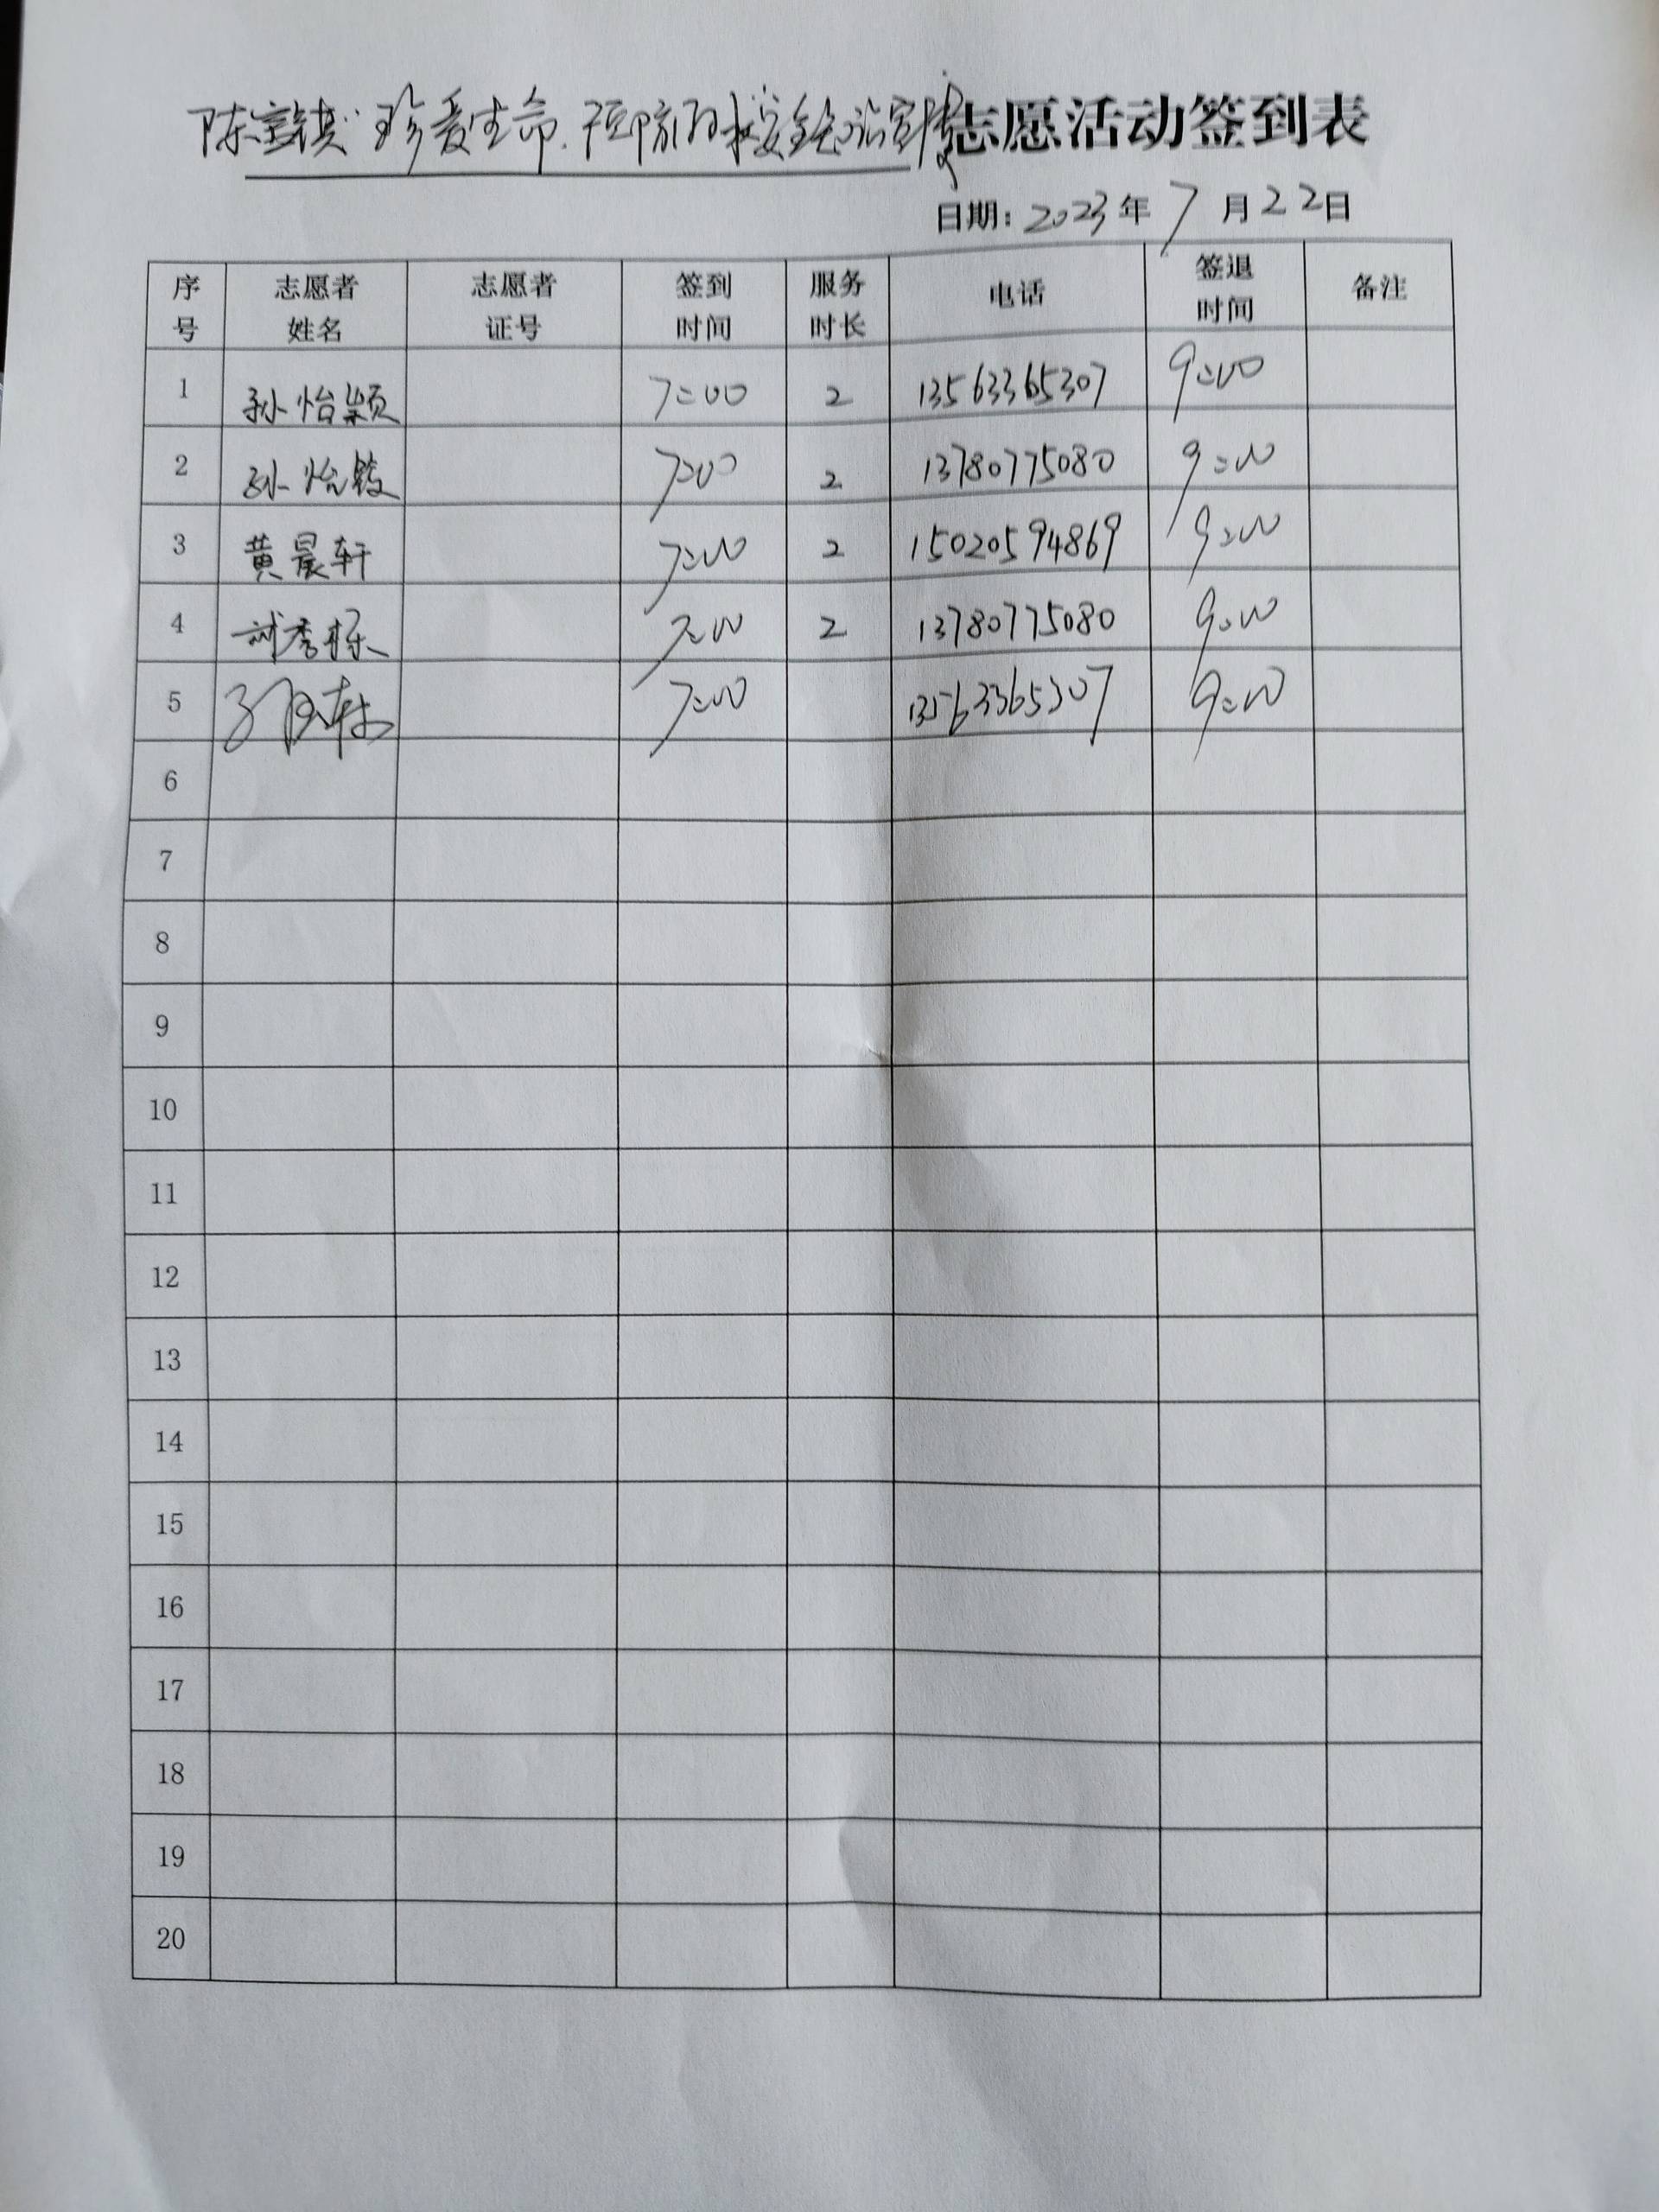 陈寨镇"珍爱生命.预防溺水安全知识宣传志愿活动签到表
日期: 2023年 7 月 22日
序号 志愿者姓名 志愿者证号 签到时间 服务时长 电话 签退时间 备注
1 孙怡颖 7:00 2 13563365307 9:00
2 孙怡 7:00 2 13780775080 9:00
3 黄晨轩 7:00 2 15020594869 9:00
4 秀 7:00 2 13780775080 9:00
5 7:00 13563365307 9:00
6
7
8
9
10
11
12
13
14
15
16
17
18
19
20